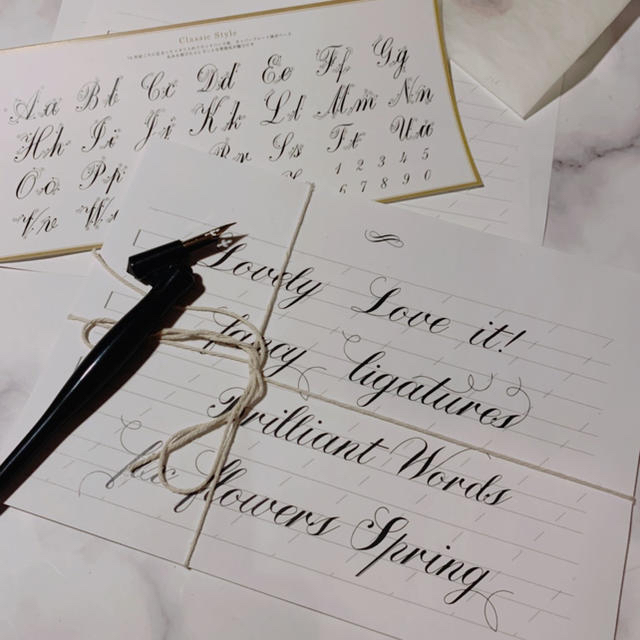 Classic Style
Aa Bb Cc Dd Ee Ff Gg
Hh Ii Jj Kk Ll Mm Nn
Oo Pp Rr Ss Tt Uu
Vv Ww
1 2 3 4 5
6 7 8 9 0
Lovely Love it!
ligatures
Brilliant Words
flowers Spring